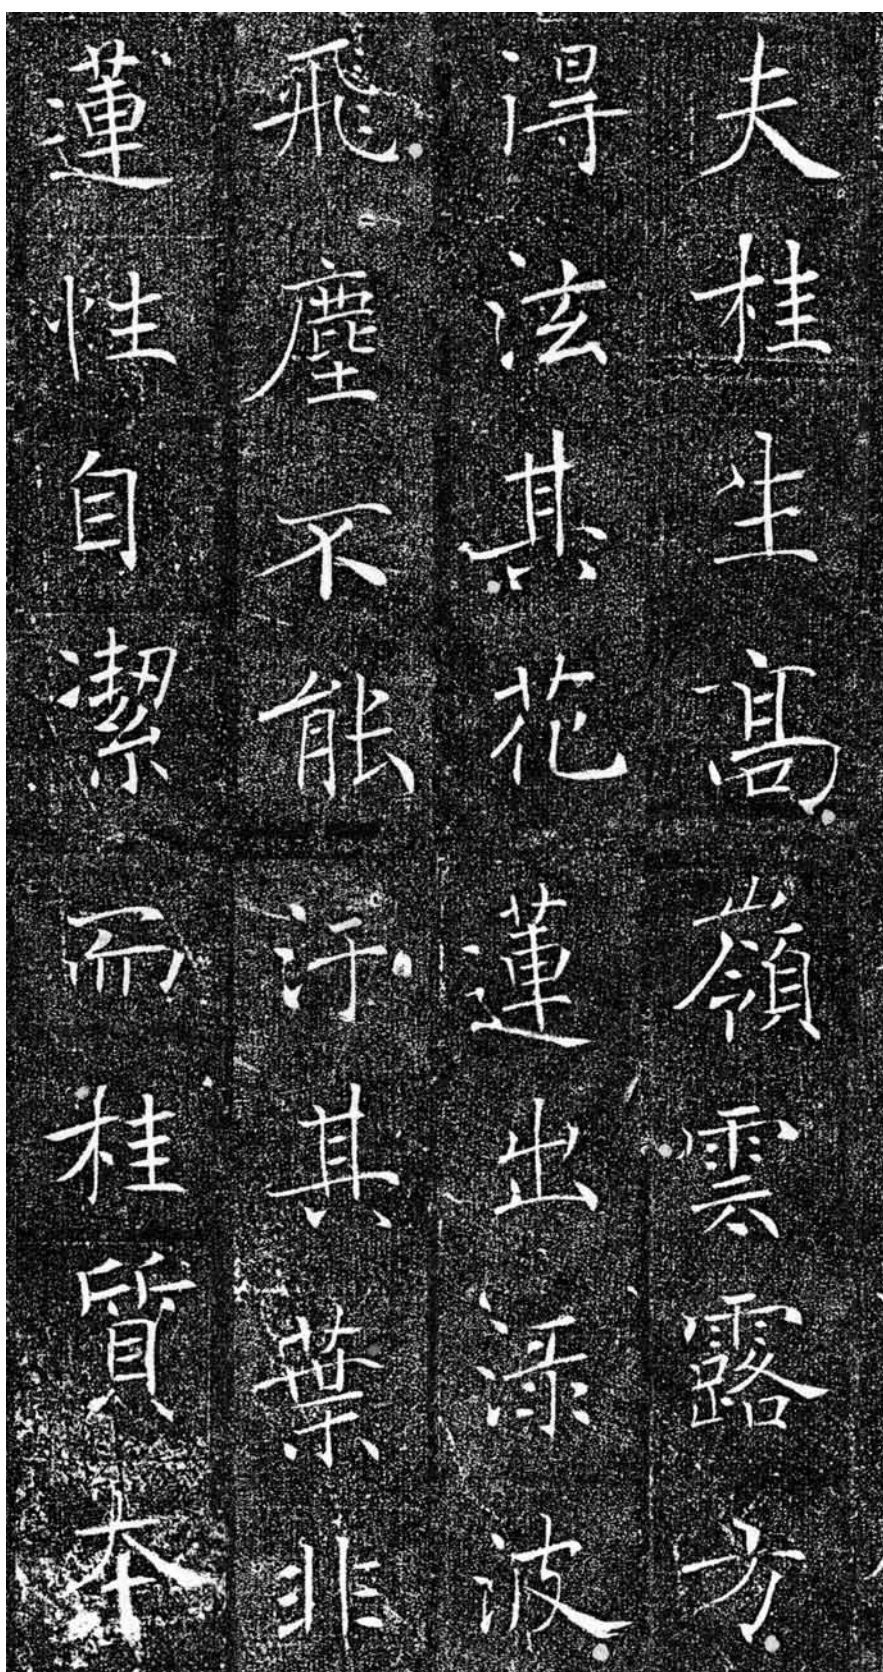 夫桂生高嶺雲露方
得泫其花蓮出渌波
飛塵不能汙其葉非
蓮性自潔而桂質本